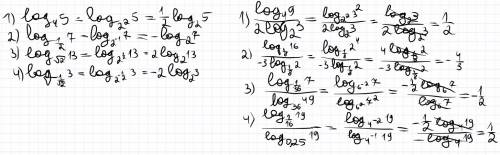 1) log₄5 = log_{2²}5 = 1/2 log₂5
2) log_{1/2}7 = log_{2⁻¹}7 = -log₂7
3) log_{√2}13 = log_{2^{1/2}}13 = 2log₂13
4) log_{1/√2}3 = log_{2^{-1/2}}3 = -2log₂3
1) log₄9 / 2log₂3 = log_{2²}3² / 2log₂3 = log₂3 / 2log₂3 = 1/2
3) log_{1/36}7 / log₃₆49 = log_{6⁻²}7 / log_{6²}7² = -1/2 log₆7 / log₆7 = -1/2
4) log_{1/16}19 / log_{0,25}19 = log_{4⁻²}19 / log_{4⁻¹}19 = -1/2 log₄19 / -log₄19 = 1/2